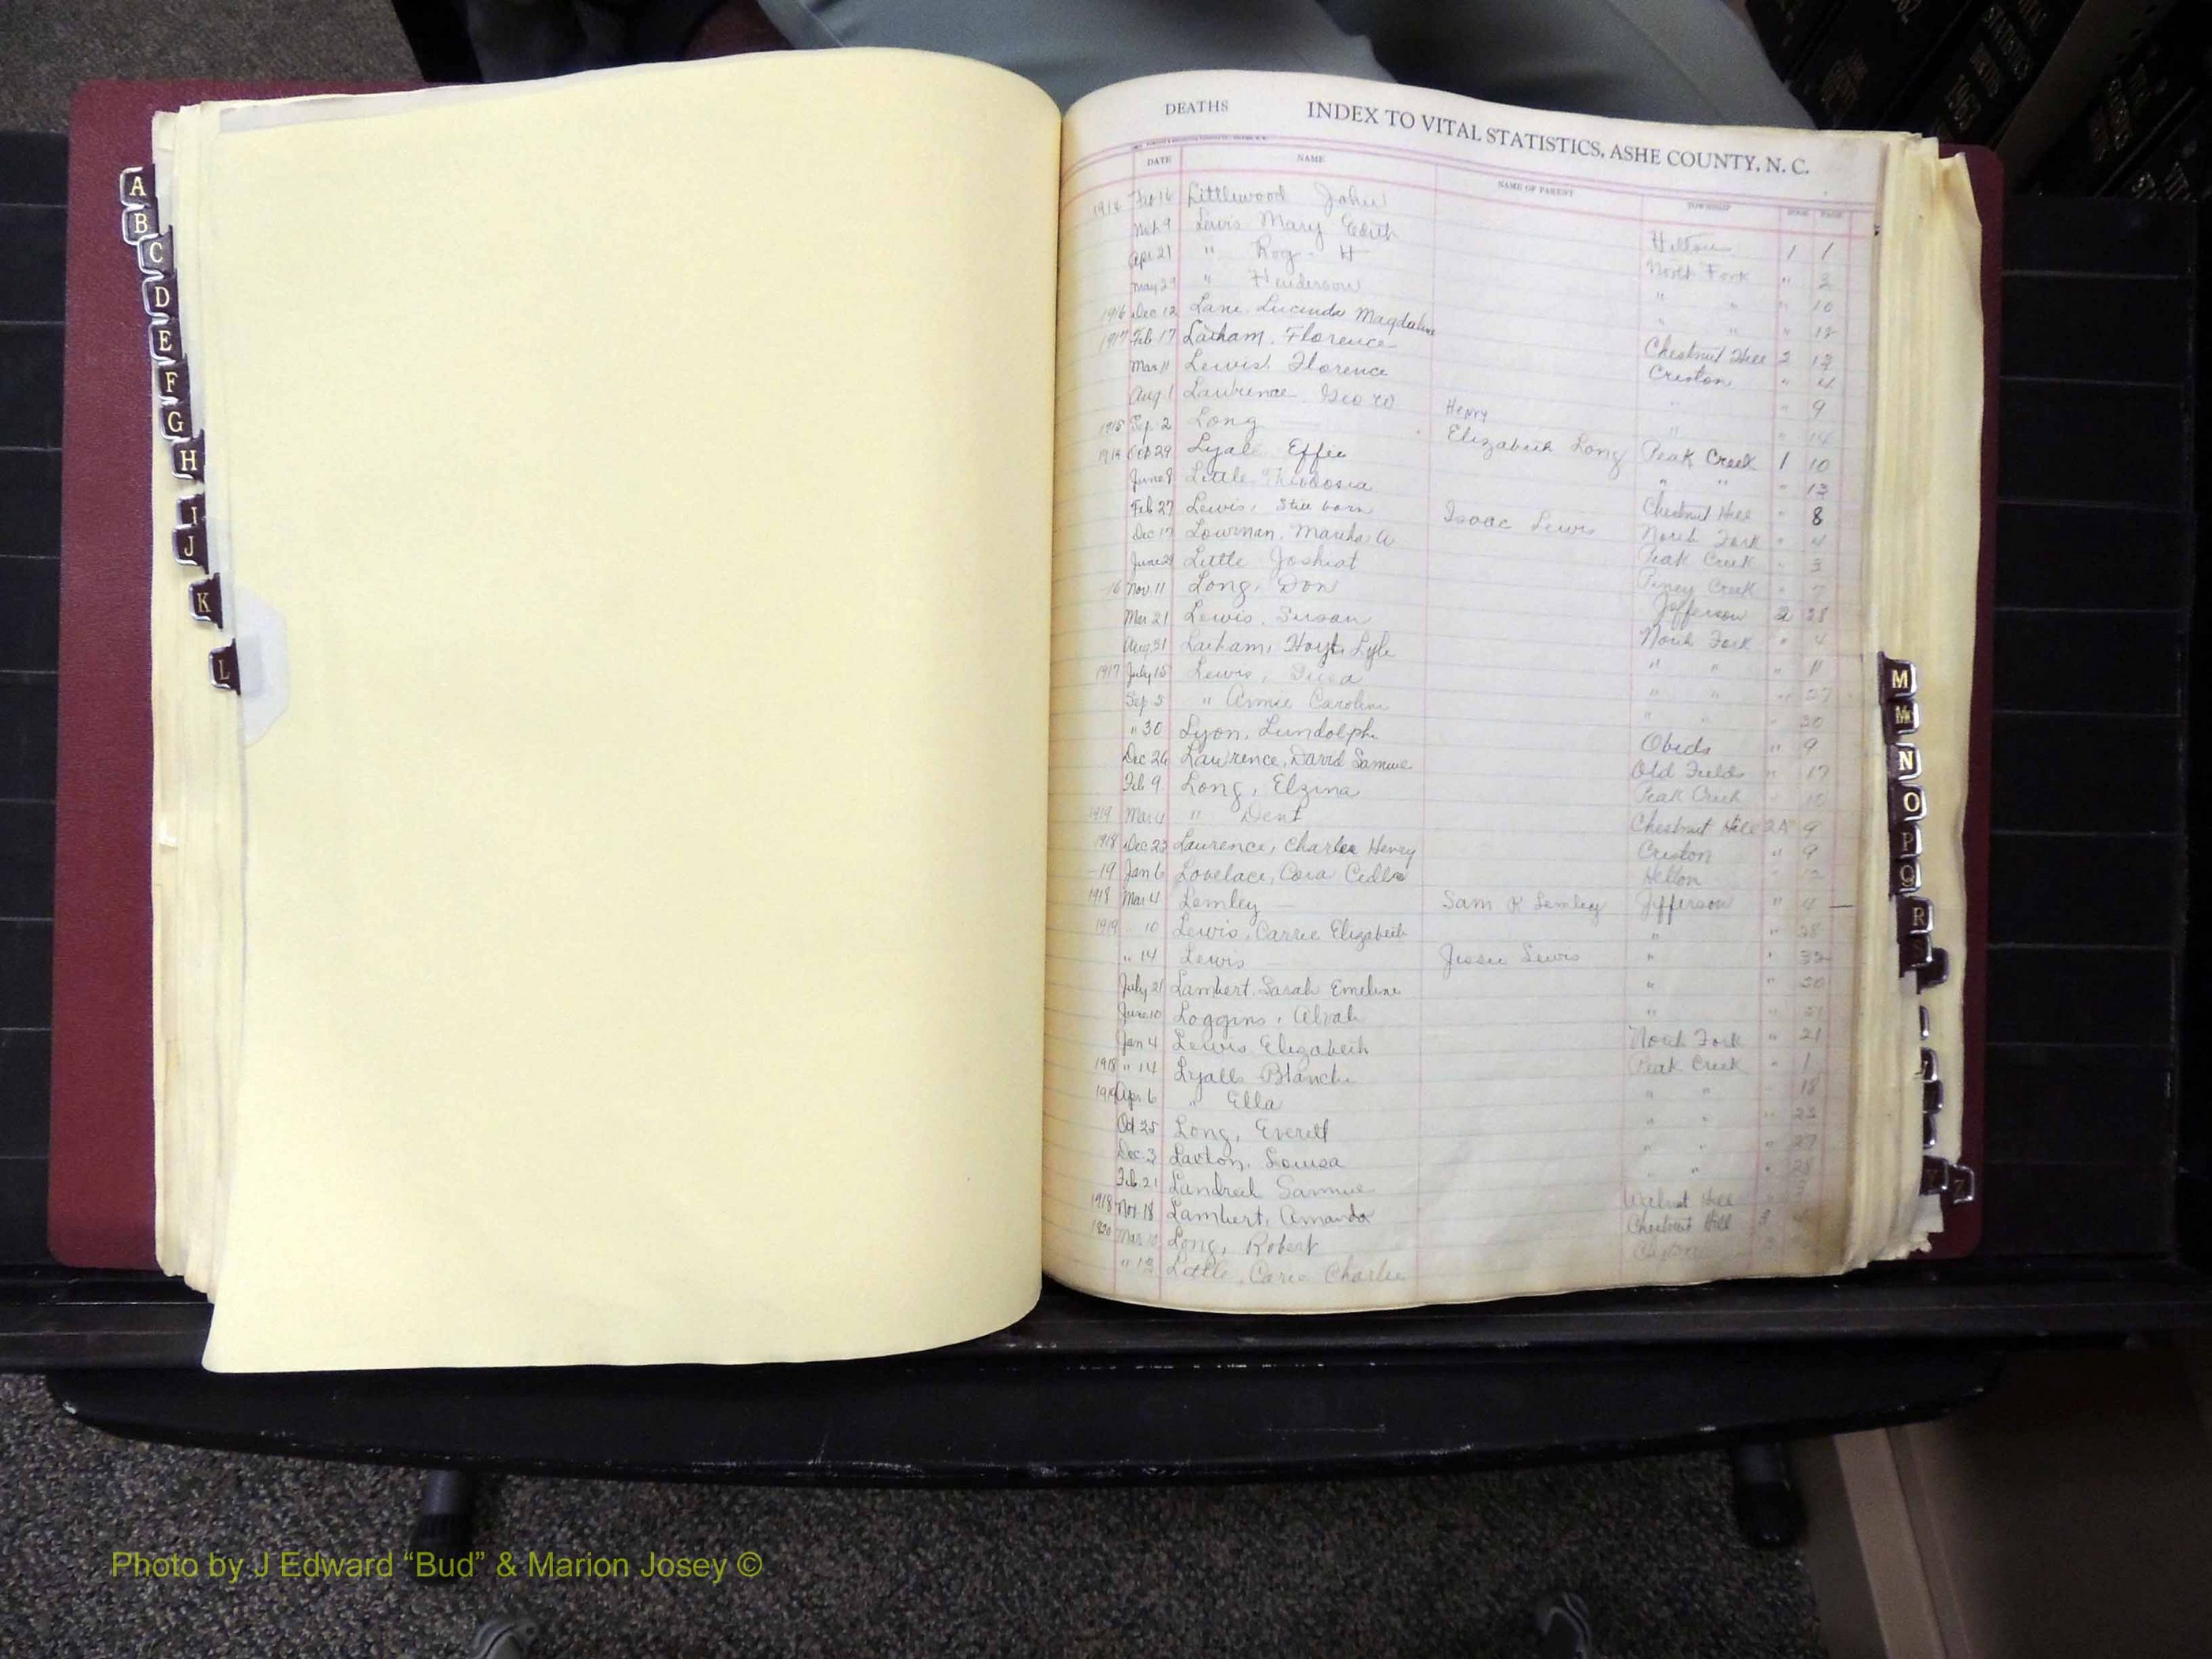 A
B
C
D
E
F
G
H
I
J
K
L
DEATHS INDEX TO VITAL STATISTICS, ASHE COUNTY, N. C.
DATE NAME NAME OF PARENT TOWNSHIP BOOK PAGE
Feb 16 Littlewood John Helton 1 1
9 Lewis Mary Edith North Fork " 2
Apr 21 " Roy H " " " 10
May 29 " Henderson " " " 12
1916 Dec 12 Lane, Lucinda Magdaline Chestnut Hill 2 12
1917 Feb 17 Latham, Florence Creston " 4
Mar 11 Lewis, Florence " " 9
Aug 1 Lawrence, Geo W " " 14
1915 Sep 2 Long — Henry Elizabeth Long Peak Creek 1 10
29 Lyall, Effie " " " 13
June 8 Little Theodosia Chestnut Hill " 8
Feb 27 Lewis, Still born Isaac Lewis North Fork " 4
Dec 17 Lowman, Martha A Peak Creek " 3
June Little Piney Creek " 7
16 Nov. 11 Long, Don Jefferson 2 38
Mar 21 Lewis, Susan North Fork " 4
Aug 31 Latham, Hoyt Lyle " " " 11
1917 July 15 Lewis, " " " 27
Sep 5 " Annie Caroline " " " 30
" 30 Lyon, Lundolph Obids " 9
Dec 26 Lawrence, David Samue Old Fields " 17
Feb 9 Long, Elzina Peak Creek " 10
1919 Mar 4 " Dent Chestnut Hill 2A 9
1918 Dec 23 Laurence, Charlee Henry Creston " 9
-19 Jan 6 Lovelace, Cora Helton " 12
1918 Mar 4 Lemley — Sam R Lemley Jefferson " 4 —
1919 10 Lewis, Carrie Elizabeth " " 28
" 14 Lewis — Jessie Lewis " " 32
July 21 Lambert, Sarah Emeline " " 30
June 10 Loggins, Alvah " " 31
Jan 4 Lewis Elizabeth North Fork " 21
1918 " 14 Lyalls Blanche Peak Creek " 1
1919 Apr. 6 " Ella " " " 18
Oct 25 Long, Everett " " " 23
Dec. 3 Laxton, Louisa " " " 27
Feb. 21 Landreth Samue " " " 28
1918 Nov. 18 Lambert, Amanda Walnut Hill
1920 Mar 10 Long, Robert Chestnut Hill 3
" 12 Little, Charlie
M
Mc
N
O
P
Q
R
S
Photo by J Edward “Bud” & Marion Josey ©